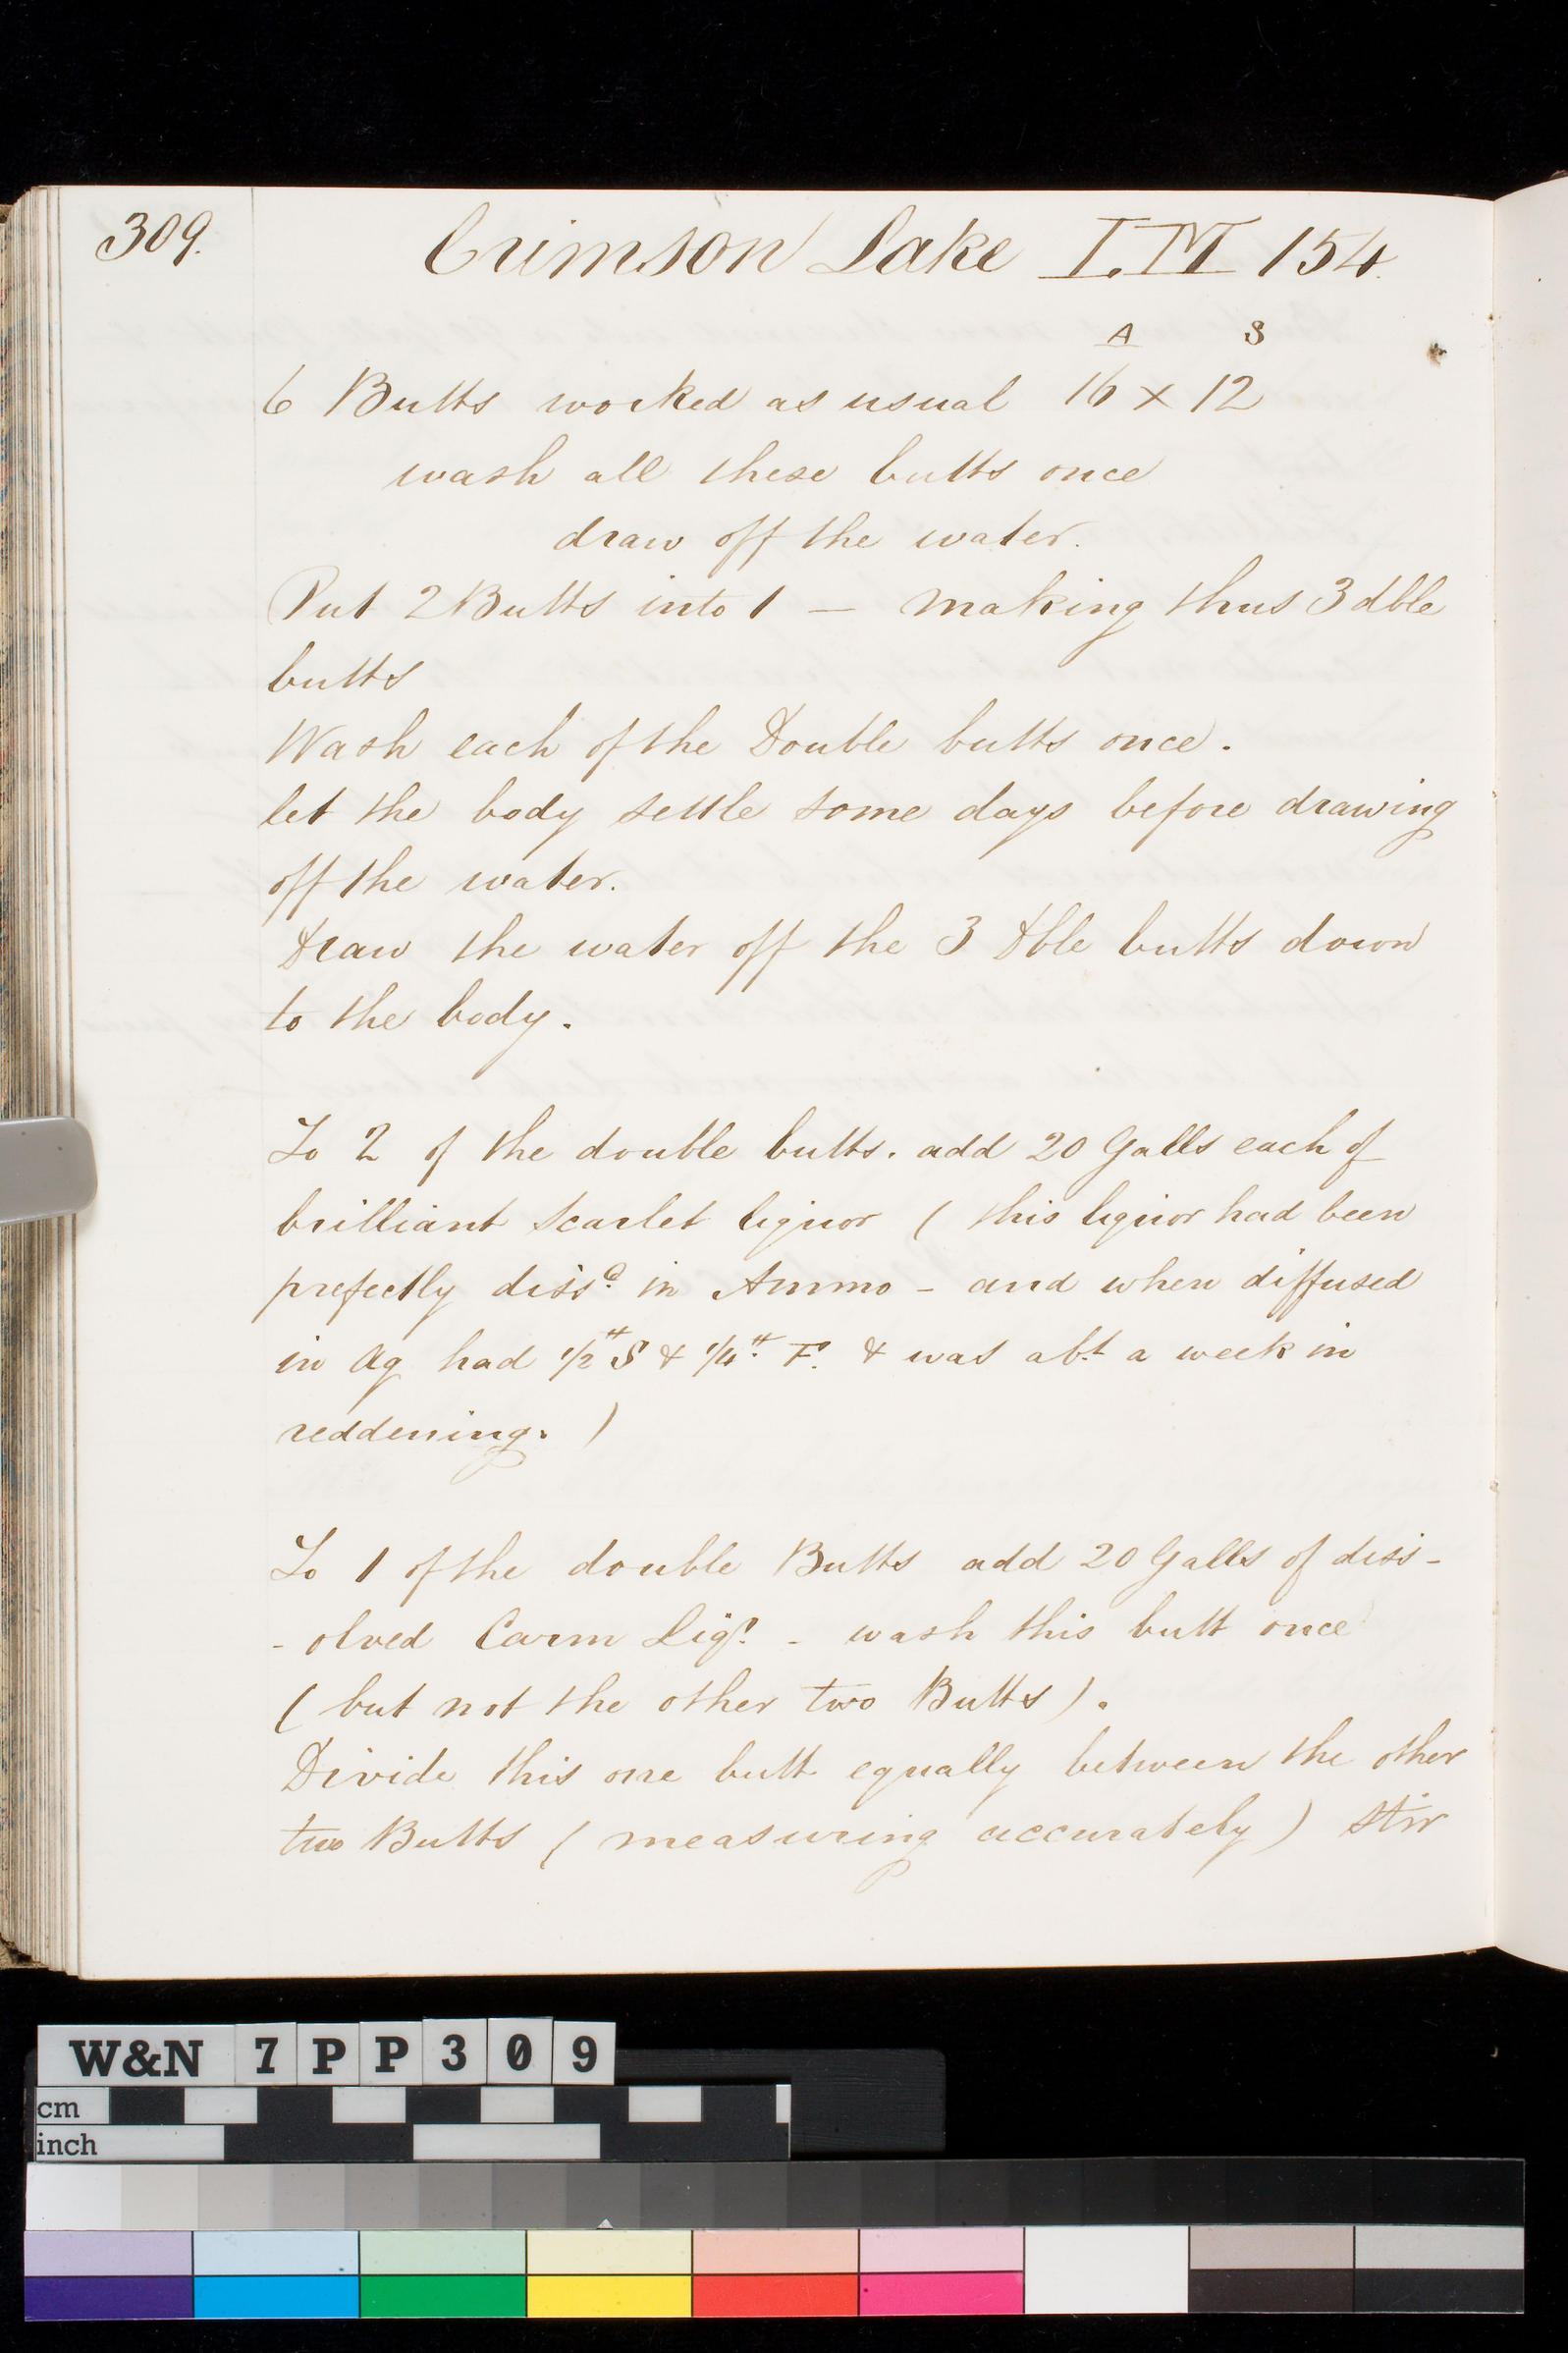 309.
Crimson Lake I.M 154.
A S
6 Butts worked as usual 16 x 12
wash all these butts once
draw off the water.
Put 2 Butts into 1 — making thus 3 dble
butts
Wash each of the Double butts once.
let the body settle some days before drawing
off the water.
Draw the water off the 3 Dble butts down
to the body.
To 2 of the double butts. add 20 Galls each of
brilliant Scarlet liquor ( this liquor had been
prefectly dissd in Ammo - and when diffused
in Aq had 1/2 tt S & 1/4 tt F. & was abt a week in
reddening. )
To 1 of the double Butts add 20 Galls of diss-
- olved Carm Liqr. - wash this butt once
( but not the other two Butts ).
Divide this one butt equally between the other
two Butts ( measuring accurately ) Stir
W&N 7PP309
cm
inch